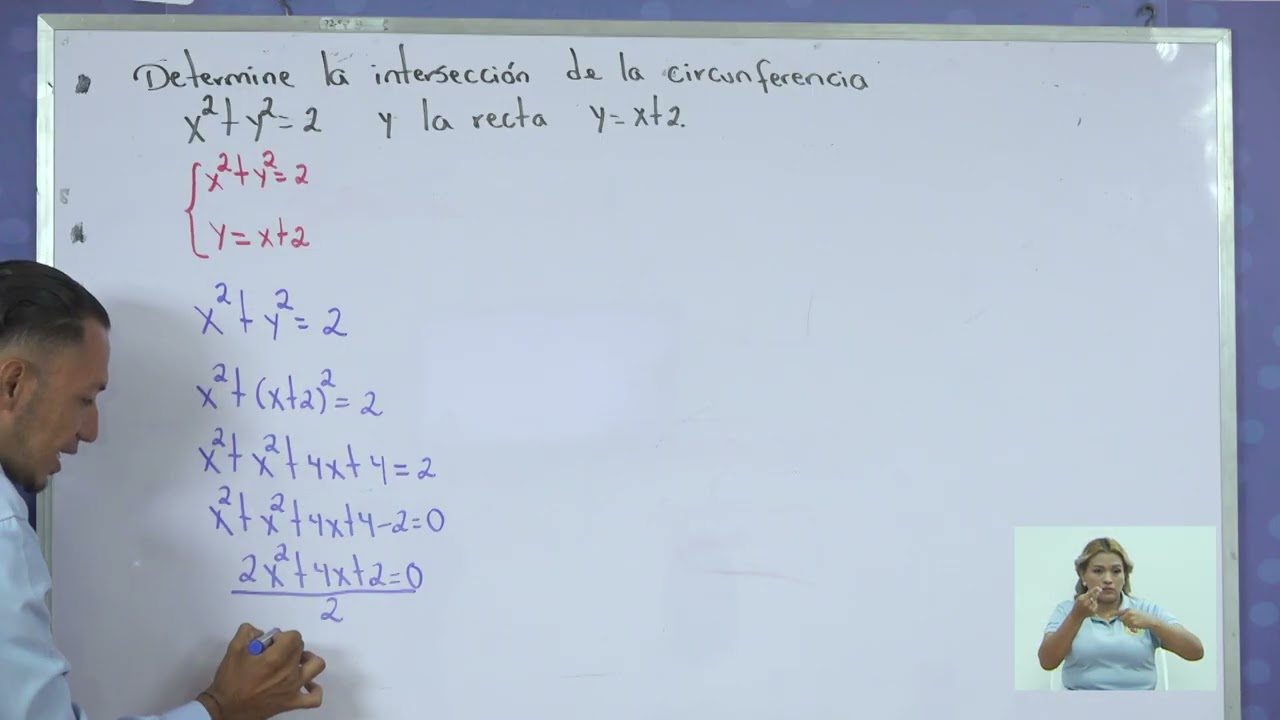 Determine la intersección de la circunferencia
x²+y²=2 y la recta y=x+2.
x²+y²=2
y=x+2
x²+y²=2
x²+(x+2)²=2
x²+x²+4x+4=2
x²+x²+4x+4-2=0
2x²+4x+2=0
2